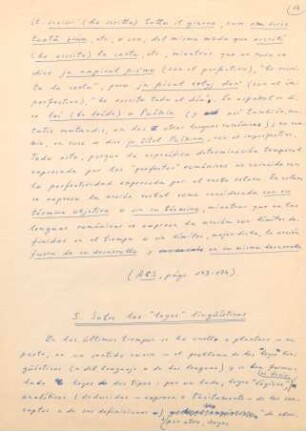 tutto il giorno, rum.
etc., o sea, del mismo modo que
(he escrito) la carta, etc., mientras que en ruso se
dice ja napisal pis'mo (con el perfectivo), "he escrito
la carta", pero ja pisal ves' den' (con el im-
perfectivo), "he escrito todo el día". En español se di-
ce leí (he leído) a Puškin (y así también, mu-
tatis mutandis, en las otras lenguas románicas), y en cam-
bio, en ruso se dice ja čital Puškina, con el imperfectivo.
Todo esto, porque la específica determinación temporal
expresada por los "perfectos" románicos no coincide con
la perfectividad expresada por el verbo eslavo. En eslavo
se expresa la acción verbal como considerada con un
término objetivo o sin su término, mientras que en las
lenguas románicas se expresa la acción con límites de-
finidos en el tiempo o sin límites, mejor dicho, la acción
fuera de su desarrollo y en su mismo desarrollo
(págs. 193-194)
5. Sobre las "leyes" lingüísticas
En los últimos tiempos se ha vuelto a plantear
en un sentido nuevo el problema de las "leyes" lin-
güísticas (o del lenguaje o de las lenguas) y se han formu-
lado leyes de dos tipos: por un lado, leyes "lógicas" o
analíticas (deducidas - expresa o tácitamente - de los con-
ceptos o de sus definiciones
por otro, leyes